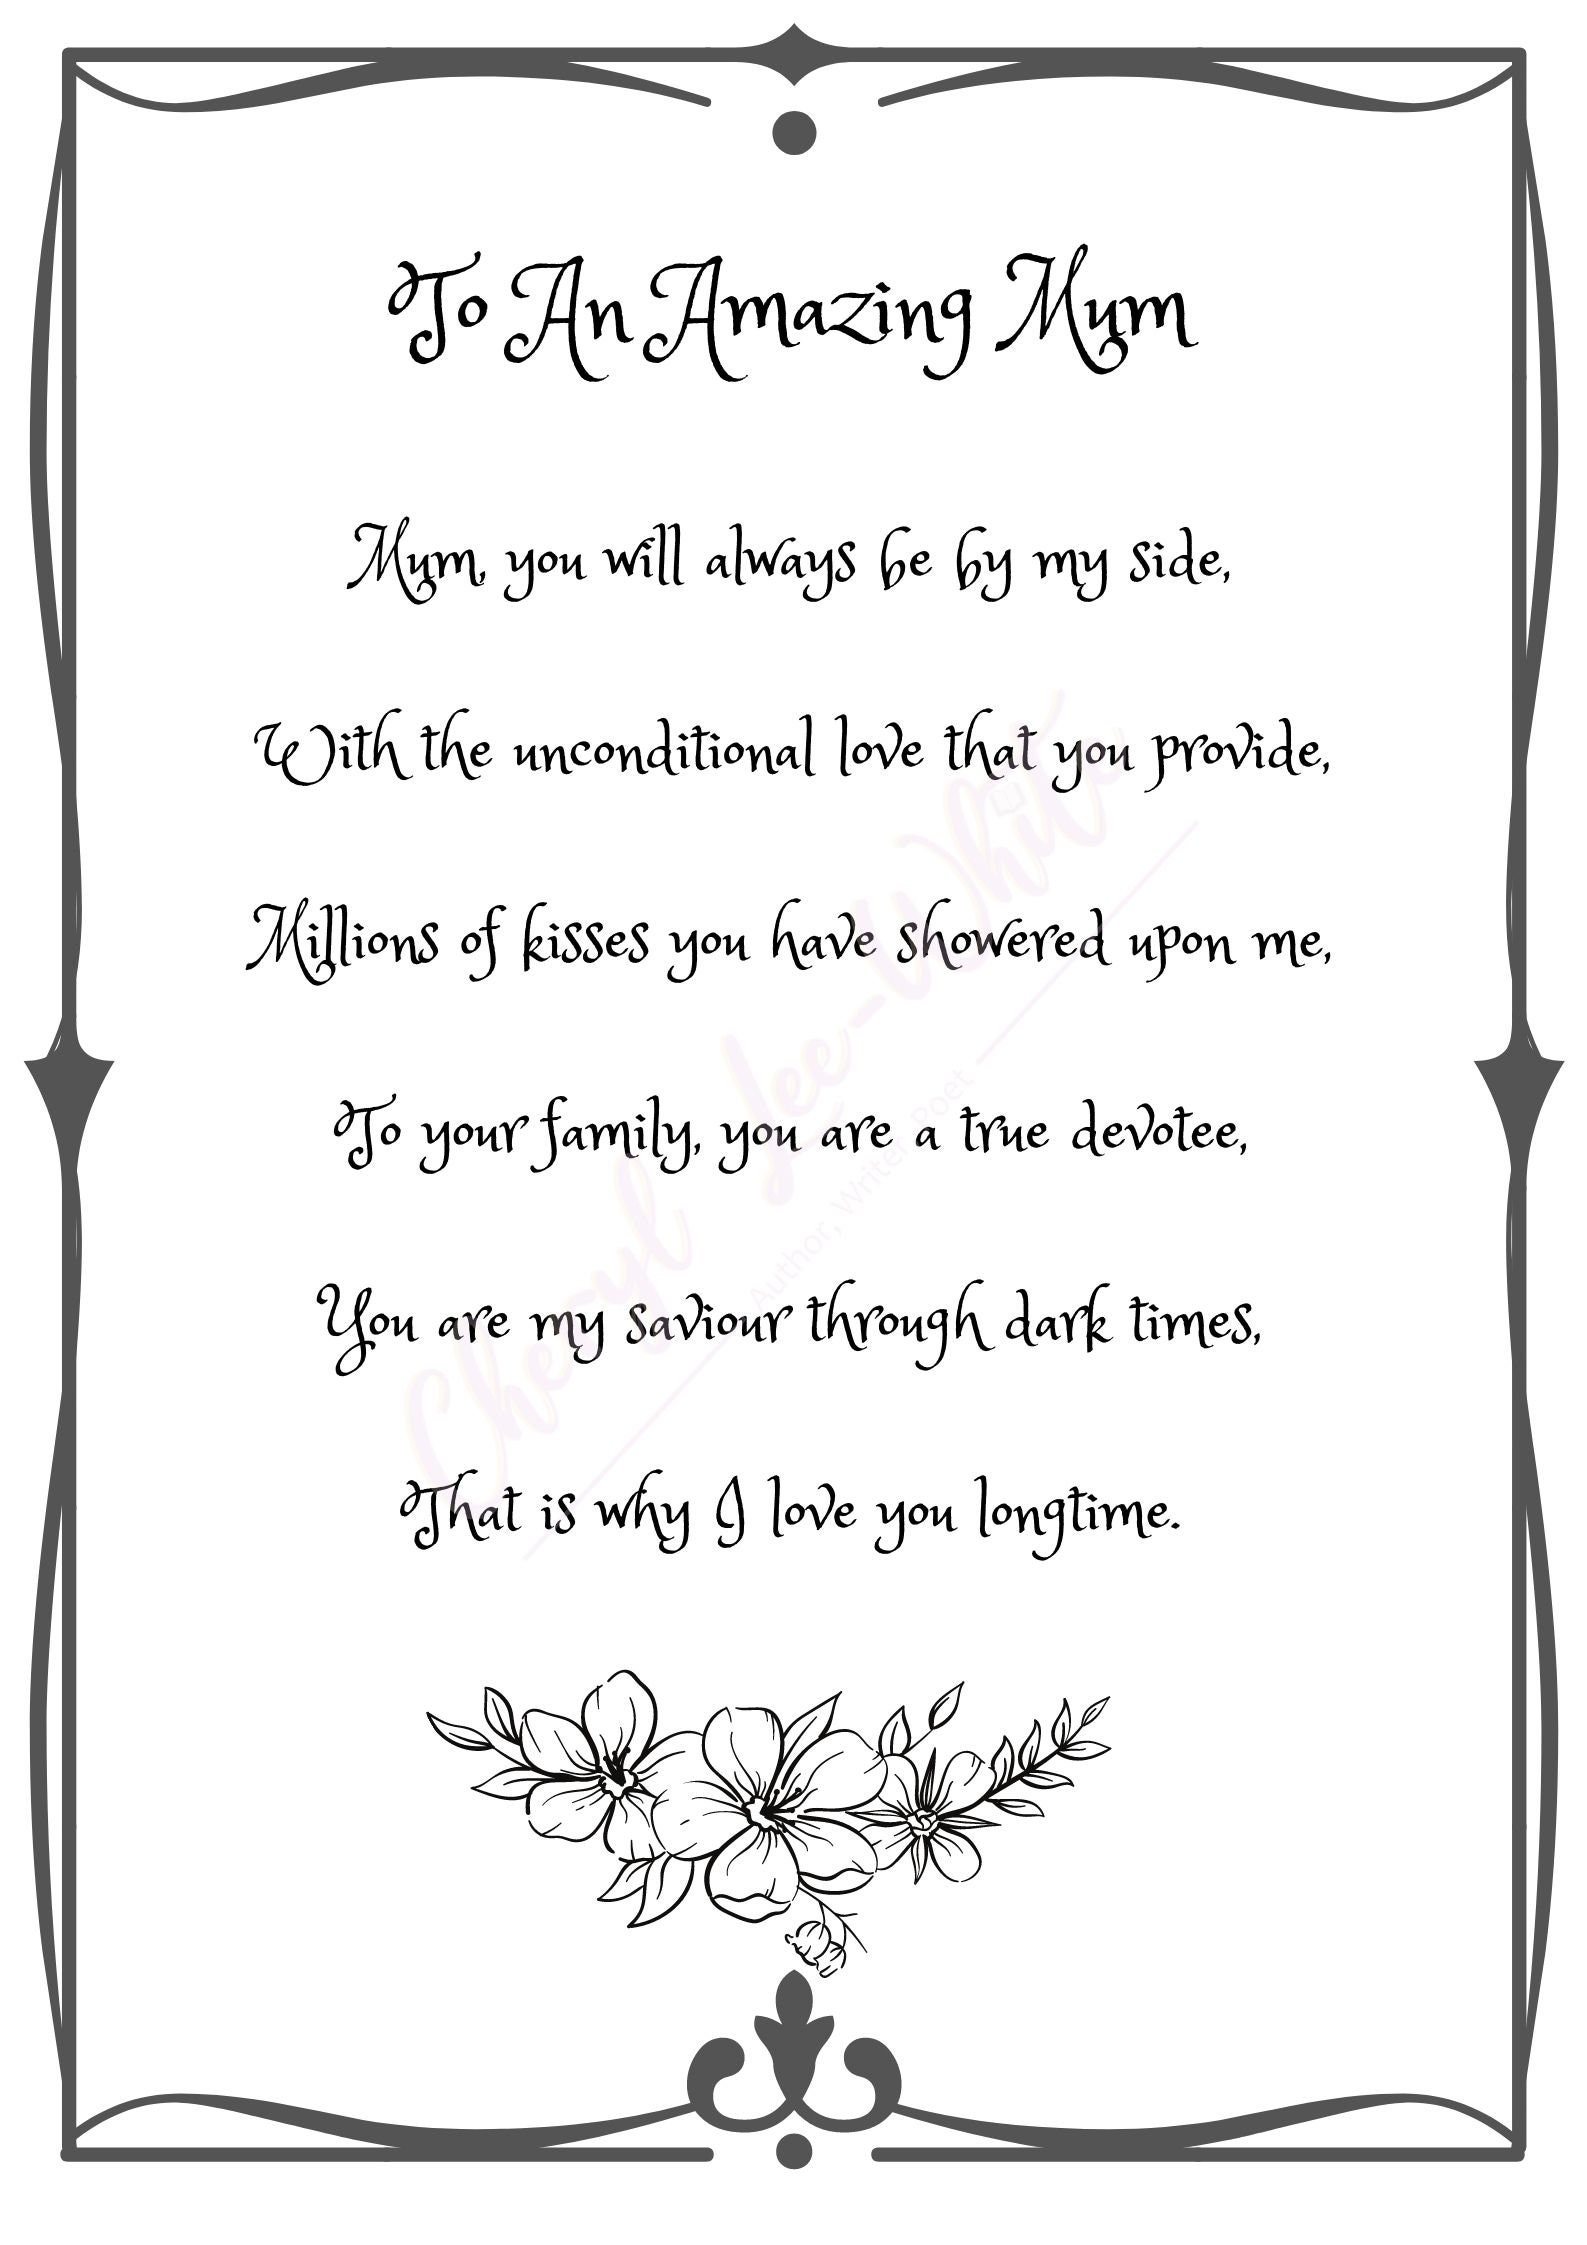 To An Amazing Mum
Mum, you will always be by my side,
With the unconditional love that you provide,
Millions of kisses you have showered upon me,
To your family, you are a true devotee,
You are my saviour through dark times,
That is why I love you longtime.
Cheryl Lee-White
Author, Writer, Poet